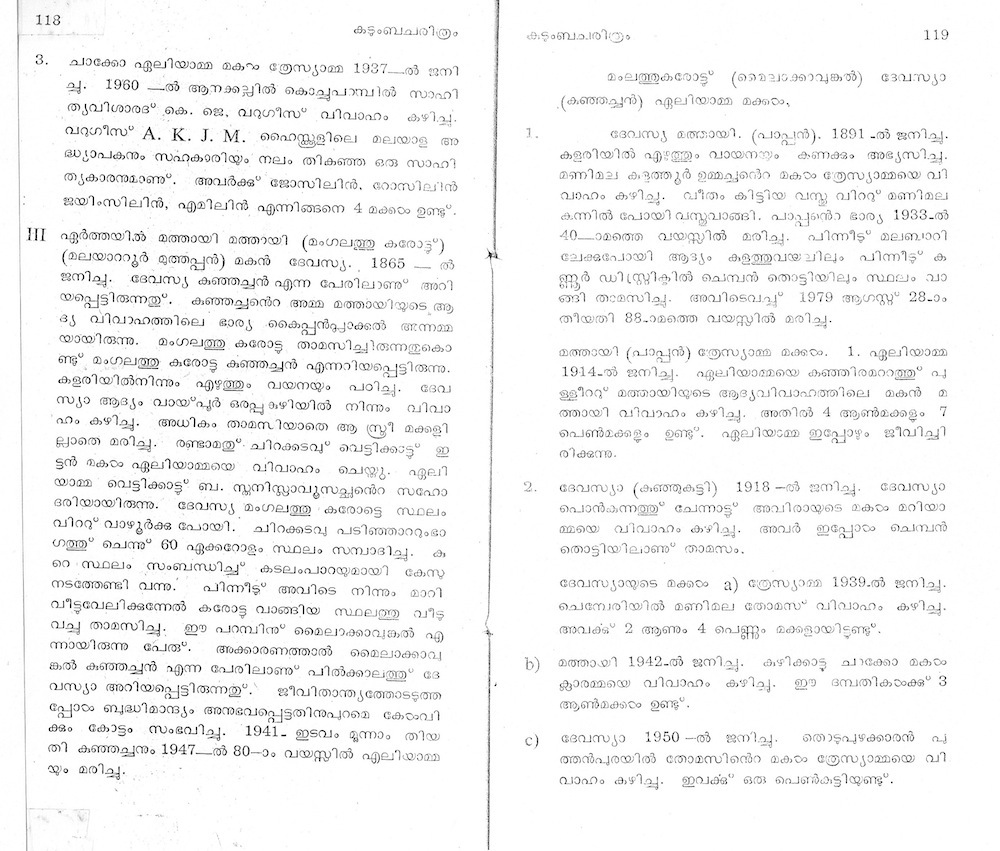 118
കുടുംബചരിത്രം
3. ചാക്കോ ഏലിയാമ്മ മകൾ ത്രേസ്യാമ്മ 1937—ൽ ജനി
ച്ചു. 1960 —ൽ ആനക്കല്ലിൽ കൊച്ചുപറമ്പിൽ സാഹി
ത്യവിശാരദ് കെ. ജെ. വറുഗീസ് വിവാഹം കഴിച്ചു.
വറുഗീസ് A. K. J. M. ഹൈസ്കൂളിലെ മലയാള അ
ദ്ധ്യാപകനും സഹകാരിയും നലം തികഞ്ഞ ഒരു സാഹി
ത്യകാരനുമാണ്. അവർക്കു് ജോസിലിൻ, റോസിലിൻ
ജയിംസിലിൻ, എമിലിൻ എന്നിങ്ങനെ 4 മക്കൾ ഉണ്ടു്.
III ഏർത്തയിൽ മത്തായി മത്തായി (മംഗലത്തു കരോട്ടു്)
(മലയാററൂർ മുത്തപ്പൻ) മകൻ ദേവസ്യ. 1865 — ൽ
ജനിച്ചു. ദേവസ്യ കുഞ്ഞച്ചൻ എന്ന പേരിലാണു് അറി
യപ്പെട്ടിരുന്നതു്. കുഞ്ഞച്ചൻെറ അമ്മ മത്തായിയുടെ ആ
ദ്യ വിവാഹത്തിലെ ഭാര്യ കൈപ്പൻപ്ലാക്കൽ അന്നമ്മ
യായിരുന്നു. മംഗലത്തു കരോട്ടു താമസിച്ചിരുന്നതുകൊ
ണ്ടു് മംഗലത്തു കരോട്ടു കുഞ്ഞച്ചൻ എന്നറിയപ്പെട്ടിരുന്നു.
കളരിയിൽനിന്നും എഴുത്തും വയനയും പഠിച്ചു. ദേവ
സ്യാ ആദ്യം വായ്പൂർ ഒരപ്പുകുഴിയിൽ നിന്നും വിവാ
ഹം കഴിച്ചു. അധികം താമസിയാതെ ആ സ്ത്രീ മക്കളി
ല്ലാതെ മരിച്ചു. രണ്ടാമതു് ചിറക്കടവു് വെട്ടിക്കാട്ടു് ഇ
ട്ടൻ മകൾ ഏലിയാമ്മയെ വിവാഹം ചെയ്തു. ഏലി
യാമ്മ വെട്ടിക്കാട്ടു് ബ. സ്തനിസ്ലാവൂസച്ചൻെറ സഹോ
ദരിയായിരുന്നു. ദേവസ്യ മംഗലത്തു കരോട്ടെ സ്ഥലം
വിററു് വാഴൂർക്കു പോയി. ചിറക്കടവു പടിഞ്ഞാററുംഭാ
ഗത്തു് ചെന്നു് 60 ഏക്കറോളം സ്ഥലം സമ്പാദിച്ചു. കു
റെ സ്ഥലം സംബന്ധിച്ച് കടലംപാറയുമായി കേസു
നടത്തേണ്ടി വന്നു. പിന്നീടു് അവിടെ നിന്നും മാറി
വീട്ടുവേലിക്കുന്നേൽ കരോട്ടു വാങ്ങിയ സ്ഥലത്തു വീടു
വച്ചു താമസിച്ചു. ഈ പറമ്പിനു് മൈലാക്കാവുങ്കൽ എ
ന്നായിരുന്നു പേരു്. അക്കാരണത്താൽ മൈലാക്കാവു
ങ്കൽ കുഞ്ഞച്ചൻ എന്ന പേരിലാണു് പിൽക്കാലത്തു് ദേ
വസ്യാ അറിയപ്പെട്ടിരുന്നതു്. ജീവിതാന്ത്യത്തോടടുത്ത
പ്പോൾ ബുദ്ധിമാന്ദ്യം അനുഭവപ്പെട്ടതിനുപുറമെ കേൾവി
ക്കും കോട്ടം സംഭവിച്ചു. 1941- ഇടവം മൂന്നാം തിയ
തി കുഞ്ഞച്ചനും 1947—ൽ 80-ാം വയസ്സിൽ ഏലിയാമ്മ
യും മരിച്ചു.
കുടുംബചരിത്രം
119
മംലത്തുകരോട്ടു് (മൈലാക്കാവുങ്കൽ) ദേവസ്യാ
(കുഞ്ഞച്ചൻ) ഏലിയാമ്മ മക്കൾ,
1. ദേവസ്യ മത്തായി. (പാപ്പൻ). 1891 -ൽ ജനിച്ചു.
കളരിയിൽ എഴുത്തും വായനയും കണക്കും അഭ്യസിച്ചു.
മണിമല കടുത്തൂർ ഉമ്മച്ചൻെറ മകൾ ത്രേസ്യാമ്മയെ വി
വാഹം കഴിച്ചു. വീതം കിട്ടിയ വസ്തു വിററു് മണിമല
കുന്നിൽ പോയി വസ്തുവാങ്ങി. പാപ്പൻെറ ഭാര്യ 1933-ൽ
40-ാമത്തെ വയസ്സിൽ മരിച്ചു. പിന്നീടു് മലബാറി
ലേക്കുപോയി ആദ്യം കുളത്തുവയലിലും പിന്നീടു് ക
ണ്ണൂർ ഡിസ്ട്രിക്ടിൽ ചെമ്പൻ തൊട്ടിയിലും സ്ഥലം വാ
ങ്ങി താമസിച്ചു. അവിടെവച്ചു് 1979 ആഗസ്റ്റ് 28-ാം
തീയതി 88-ാമത്തെ വയസ്സിൽ മരിച്ചു.
മത്തായി (പാപ്പൻ) ത്രേസ്യാമ്മ മക്കൾ. 1. ഏലിയാമ്മ
1914-ൽ ജനിച്ചു. ഏലിയാമ്മയെ കുഞ്ഞിരമററത്തു് പു
ള്ളീററു് മത്തായിയുടെ ആദ്യവിവാഹത്തിലെ മകൻ മ
ത്തായി വിവാഹം കഴിച്ചു. അതിൽ 4 ആൺമക്കളും 7
പെൺമക്കളും ഉണ്ടു്. ഏലിയാമ്മ ഇപ്പോഴും ജീവിച്ചി
രിക്കുന്നു.
2. ദേവസ്യാ (കുഞ്ഞുകുട്ടി) 1918 —ൽ ജനിച്ചു. ദേവസ്യാ
പൊൻകുന്നത്തു് ചേന്നാട്ടു് അവിരായുടെ മകൾ മറിയാ
മ്മയെ വിവാഹം കഴിച്ചു. അവർ ഇപ്പോൾ ചെമ്പൻ
തൊട്ടിയിലാണു് താമസം.
ദേവസ്യായുടെ മക്കൾ a) ത്രേസ്യാമ്മ 1939-ൽ ജനിച്ചു.
ചെമ്പേരിയിൽ മണിമല തോമസ് വിവാഹം കഴിച്ചു.
അവർക്കു് 2 ആണും 4 പെണ്ണും മക്കളായിട്ടുണ്ടു്.
b) മത്തായി 1942-ൽ ജനിച്ചു. കുഴിക്കാട്ടു ചാക്കോ മകൾ
ക്ലാരമ്മയെ വിവാഹം കഴിച്ചു. ഈ ദമ്പതികൾക്കു് 3
ആൺമക്കൾ ഉണ്ടു്.
c) ദേവസ്യാ 1950 —ൽ ജനിച്ചു. തൊടുപുഴക്കാരൻ പു
ത്തൻപുരയിൽ തോമസിൻെറ മകൾ ത്രേസ്യാമ്മയെ വി
വാഹം കഴിച്ചു. ഇവർക്കു് ഒരു പെൺകുട്ടിയുണ്ടു്.